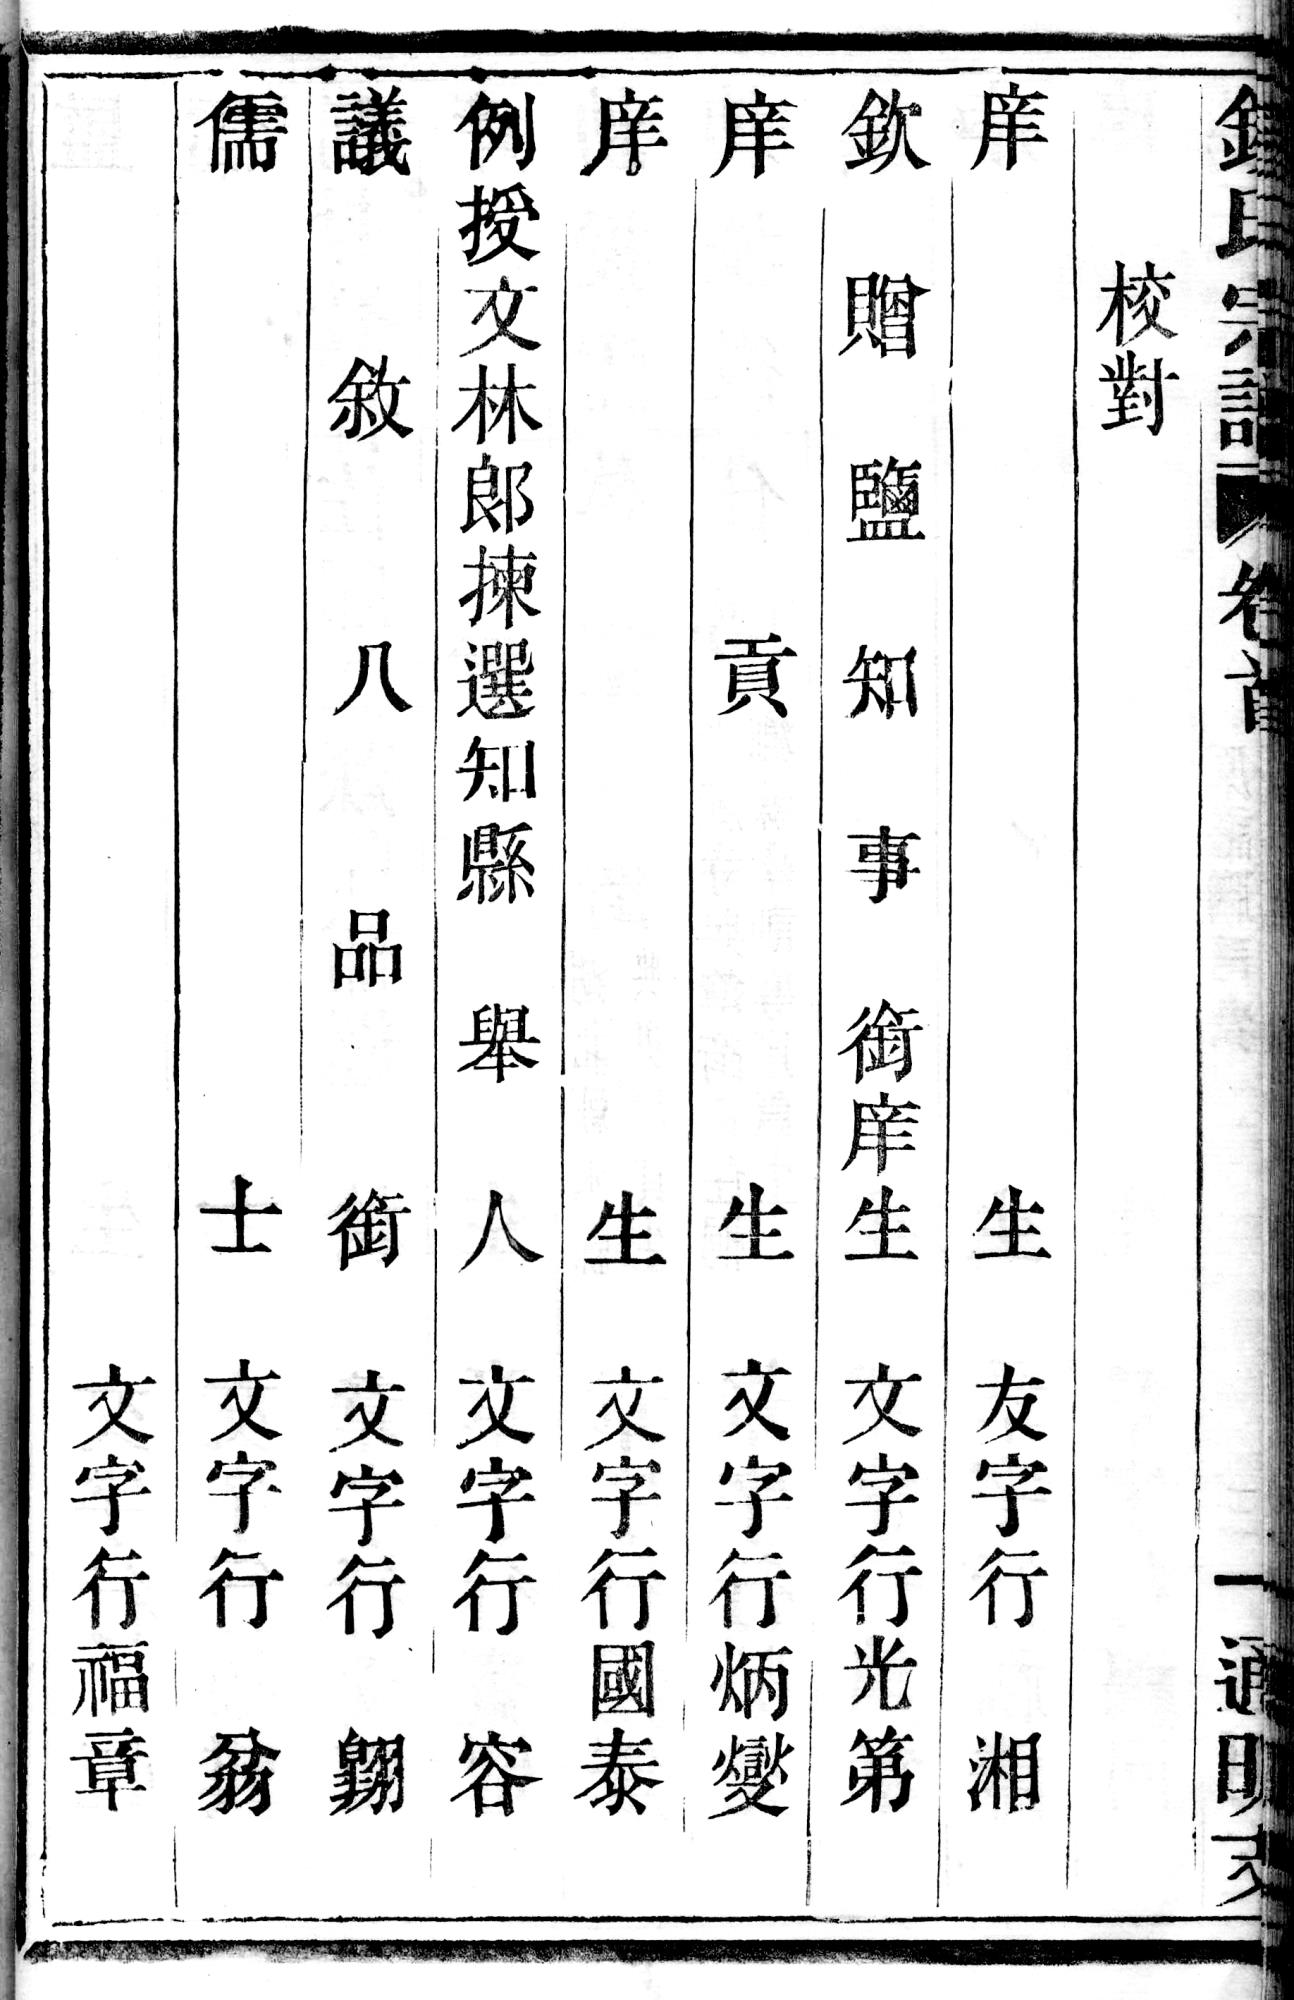 氏宗譜 卷首 一 通明支
校對
庠生 友字行 湘
欽贈鹽知事銜庠生 文字行光第
庠貢生 文字行炳燮
庠生 文字行國泰
例授文林郎揀選知縣舉人 文字行 容
議敘八品銜 文字行 翺
儒士 文字行 翁
文字行福章